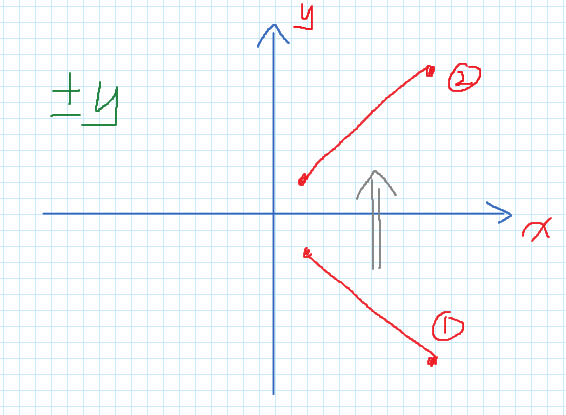 y
± y
②
x
①